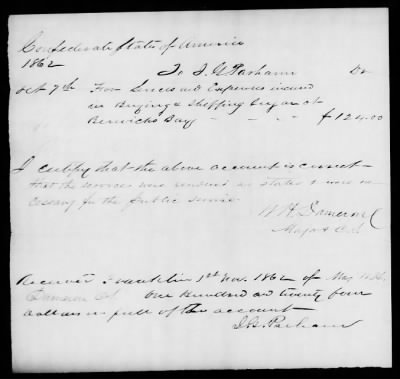 Confederate States of America
1862 To J. G. Parham Dr
Oct 7th For Services and Expenses incured
in Buying & Shipping Sugar at
Berwicks Bay - - - - $124.00
I certify that the above account is correct
that the services were rendered as stated & were ne
cessary for the public service
W H Dameron
Major & C.S.
Received Franklin 1st Nov. 1862 of Maj W.H.
Dameron CS One Hundred and twenty four
dollars in full of the account
J.G. Parham